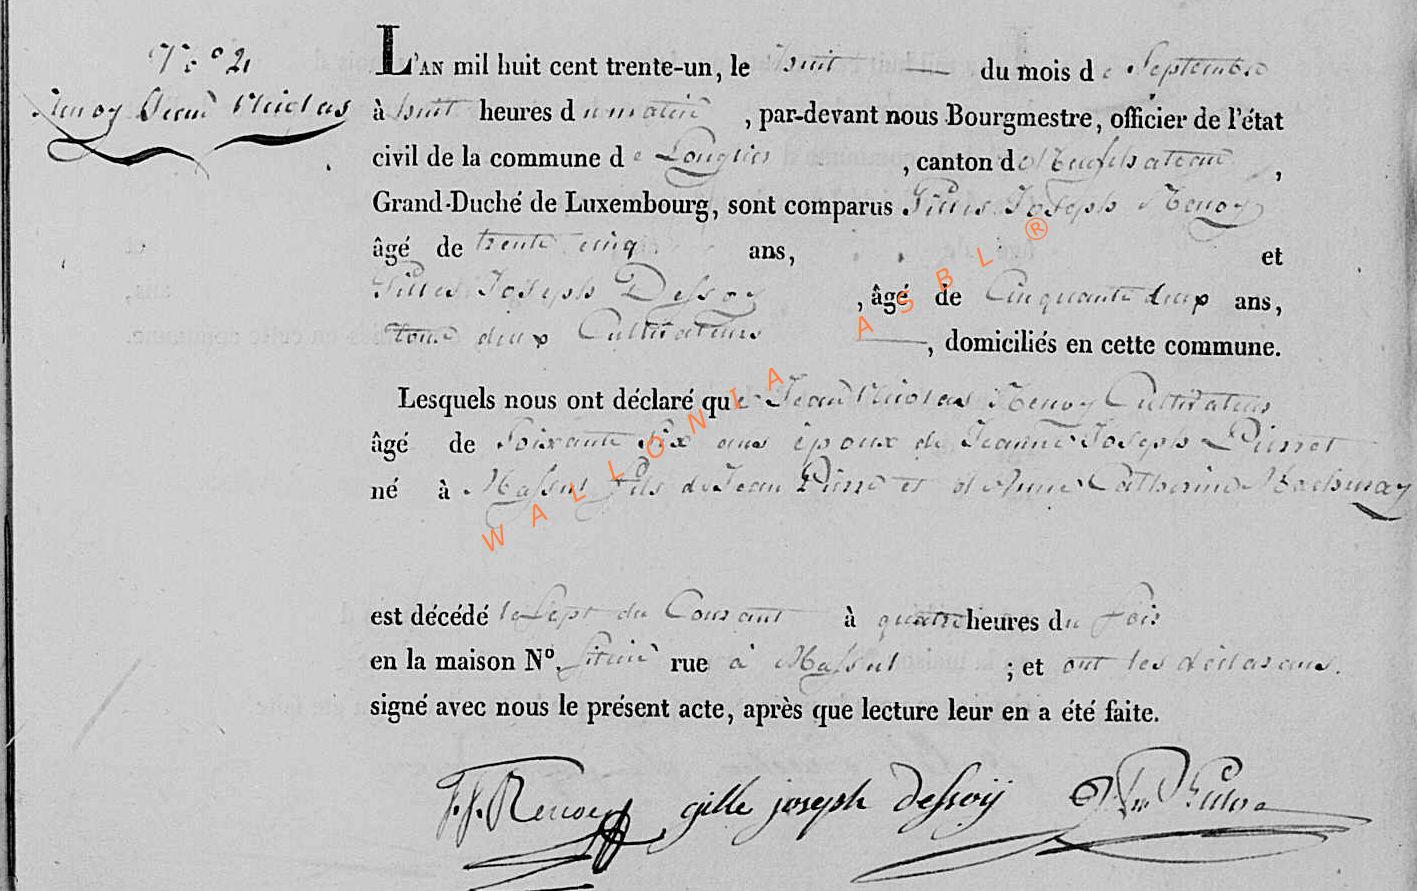 N° 21
Renoy Jean Nicolas
L'AN mil huit cent trente-un, le huit du mois de Septembre
à huit heures du matin, par-devant nous Bourgmestre, officier de l'état
civil de la commune de Longlier, canton de Neufchateau,
Grand-Duché de Luxembourg, sont comparus Joseph Renoy
âgé de trente cinq ans, et
Gilles Joseph Dessoy, âgé de Cinquante deux ans,
tous deux Cultivateurs, domiciliés en cette commune.
Lesquels nous ont déclaré que Jean Nicolas Renoy Cultivateur
âgé de Soixante six ans époux de Jeanne Joseph Pierret
né à Massul fils de Jean Pierre et d'Anne Catherine
est décédé le Sept du Courant à quatre heures du Soir
en la maison N°. Située rue à Massul ; et ont les déclarans
signé avec nous le présent acte, après que lecture leur en a été faite.
J. J. Renoy gille joseph dessoij
WALLONIA ASBL ®